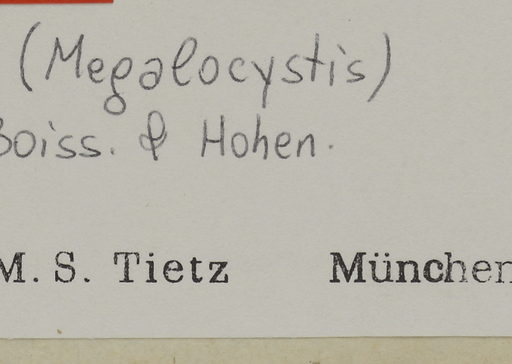 (Megalocystis)
Boiss. & Hohen.
M. S. Tietz München